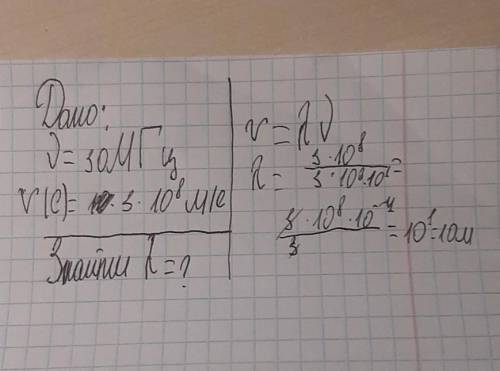 Дано:
ν = 30МГц
v(c) = 3·10⁸ м/с
Знайти λ = ?
v = λν
λ = 3·10⁸ / 3·10¹·10⁶ =
3·10⁸·10⁻⁷ / 3 = 10¹ = 10м